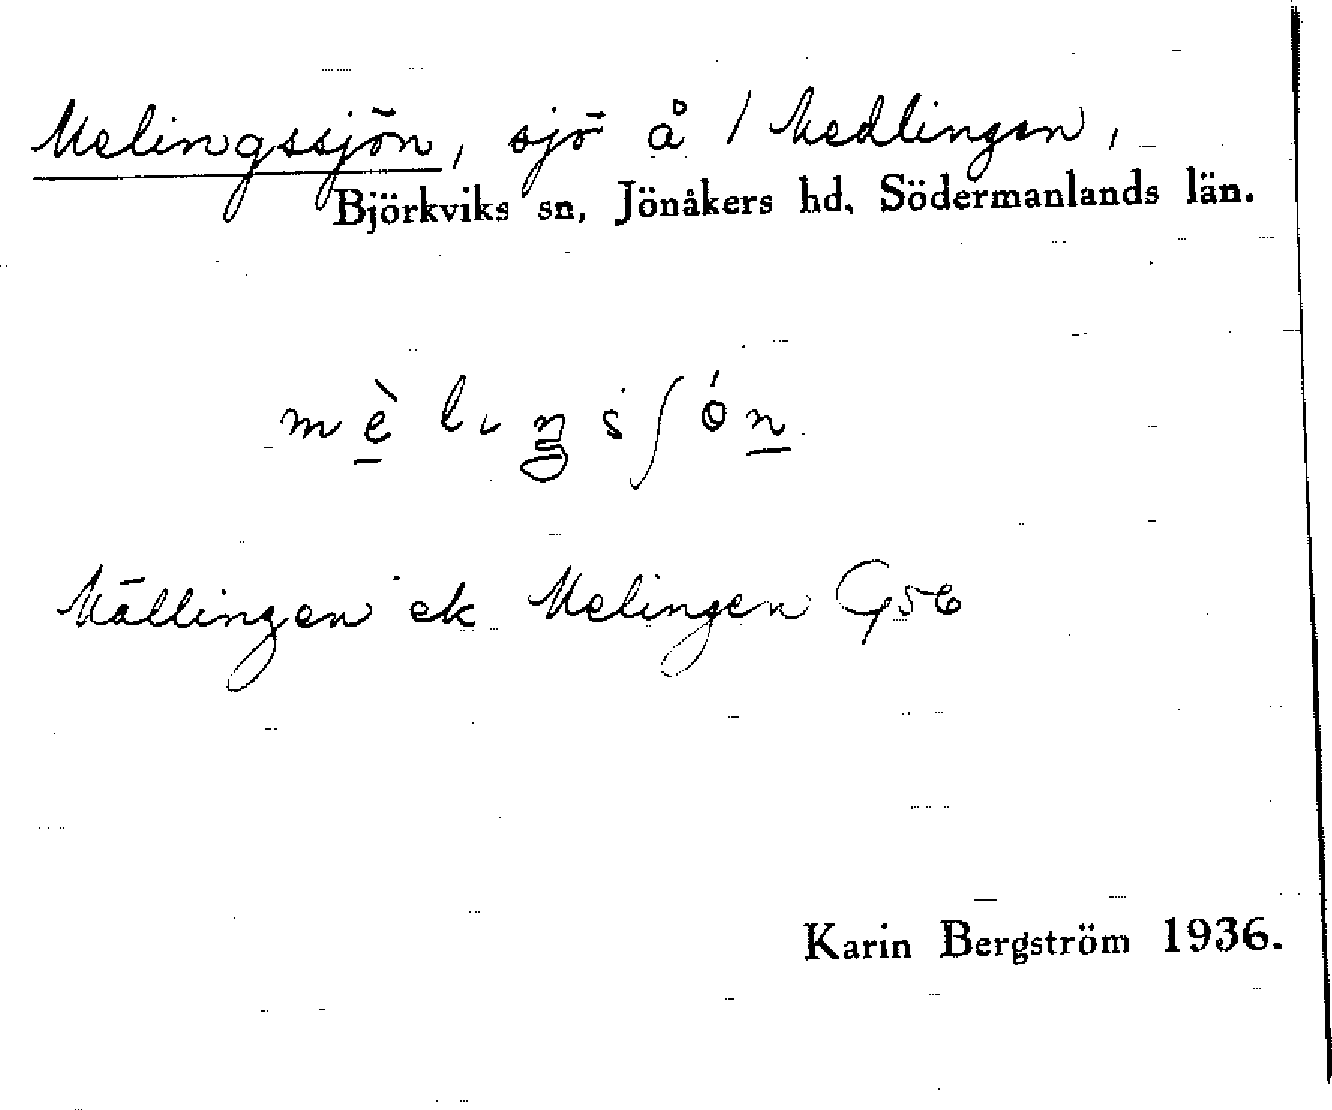 Melingssjön, sjö å 1 Medlingen,
Björkviks sn, Jönåkers hd, Södermanlands län.
mè̱ lıŋsʃón̲
Mällingen ek Melingen G56
Karin Bergström 1936.